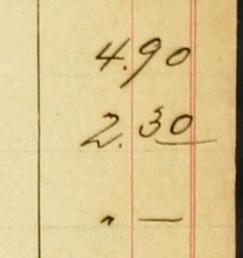 4.90
2.30
" —